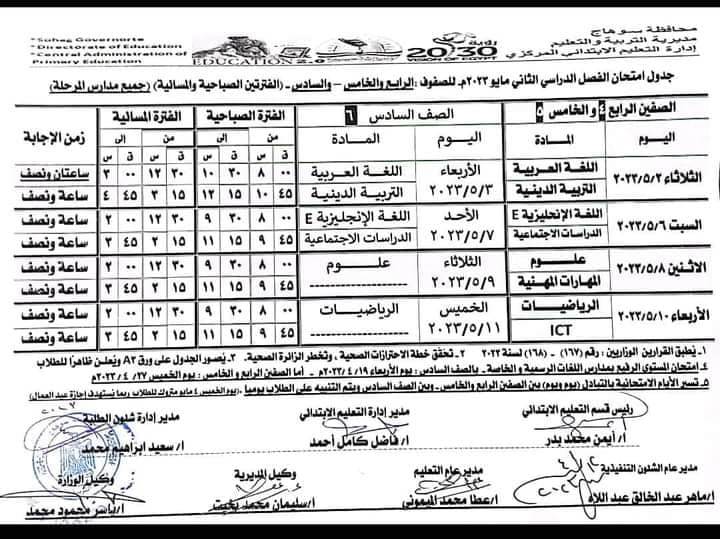 محافظة سوهاج
مديرية التربية والتعليم
إدارة التعليم الابتدائي المركزي
*Sohag Governorte
*Directorate of Education
*Central Administration of
Primary Education
EDUCATION 2.0
رؤية
2030
VISION OF EGYPT
جدول امتحان الفصل الدراسي الثاني مايو ٢٠٢٣م. للصفوف :الرابع والخامس - والسادس - (الفترتين الصباحية والمسائية) (جميع مدارس المرحلة)
الصفين الرابع ٤ والخامس ٥
الصف السادس ٦
الفترة الصباحية
الفترة المسائية
زمن الإجابة
اليوم
المادة
اليوم
المادة
من
إلى
من
إلى
ق س ق س ق س ق س
الثلاثاء ٢٠٢٣/٥/٢
اللغة العربية
الأربعاء ٢٠٢٣/٥/٣
اللغة العربية
٠٠ ٨ ٣٠ ١٠ ٣٠ ١٢ ٠٠ ٣ ساعتان ونصف
التربية الدينية
التربية الدينية
٤٥ ١٠ ١٥ ١٢ ١٥ ٣ ٤٥ ٤ ساعة ونصف
السبت ٢٠٢٣/٥/٦
اللغة الإنجليزية E
الأحد ٢٠٢٣/٥/٧
اللغة الإنجليزية E
٠٠ ٨ ٣٠ ٩ ٣٠ ١٢ ٠٠ ٢ ساعة ونصف
الدراسات الاجتماعية
الدراسات الاجتماعية
٤٥ ٩ ١٥ ١١ ١٥ ٢ ٤٥ ٣ ساعة ونصف
الاثنين ٢٠٢٣/٥/٨
علوم
الثلاثاء ٢٠٢٣/٥/٩
علوم
٠٠ ٨ ٣٠ ٩ ٣٠ ١٢ ٠٠ ٢ ساعة ونصف
المهارات المهنية
-----------------
٤٥ ٩ ١٥ ١١ ١٥ ٢ ٤٥ ٣ ساعة ونصف
الأربعاء ٢٠٢٣/٥/١٠
الرياضيات
الخميس ٢٠٢٣/٥/١١
الرياضيات
٠٠ ٨ ٣٠ ٩ ٣٠ ١٢ ٠٠ ٢ ساعة ونصف
ICT
-----------------
٤٥ ٩ ١٥ ١١ ١٥ ٢ ٤٥ ٣ ساعة ونصف
١. يُطبق القرارين الوزاريين : رقم (١٦٧)- (١٦٨) لسنة ٢٠٢٢ ٢. تحقق خطة الاحترازات الصحية ، وتخطر الزائرة الصحية. ٣. يُصور الجدول على ورق A3 ويُعلن ظاهرًا للطلاب
٤. امتحان المستوى الرفيع بمدارس اللغات الرسمية والخاصة - بالصف السادس : يوم الأربعاء ١٩ /٤ /٢٠٢٣م - أما الصفين الرابع والخامس : يوم الخميس ٢٧ /٤ /٢٠٢٣م
٥. تسير الأيام الامتحانية بالتبادل (يوم ويوم) بين الصفين الرابع والخامس- وبين الصف السادس ويتم التنبيه على الطلاب يومياً . (يوم الخميس ٤ مايو متروك للطلاب ربما تستهدف إجازة عيد العمال)
رئيس قسم التعليم الابتدائي
مدير إدارة التعليم الابتدائي
مدير إدارة شئون الطلبة
أ/ أيمن محمد بدر
أ/ فاضل كامل أحمد
أ/ سعيد ابراهيم محمد
مدير عام الشئون التنفيذية
مدير عام التعليم
وكيل المديرية
وكيل الوزارة
أ/ماهر عبد الخالق عبد اللاه
أ/عطا محمد الميموني
أ/سليمان محمد بخيت
أ/ياسر محمود محمد